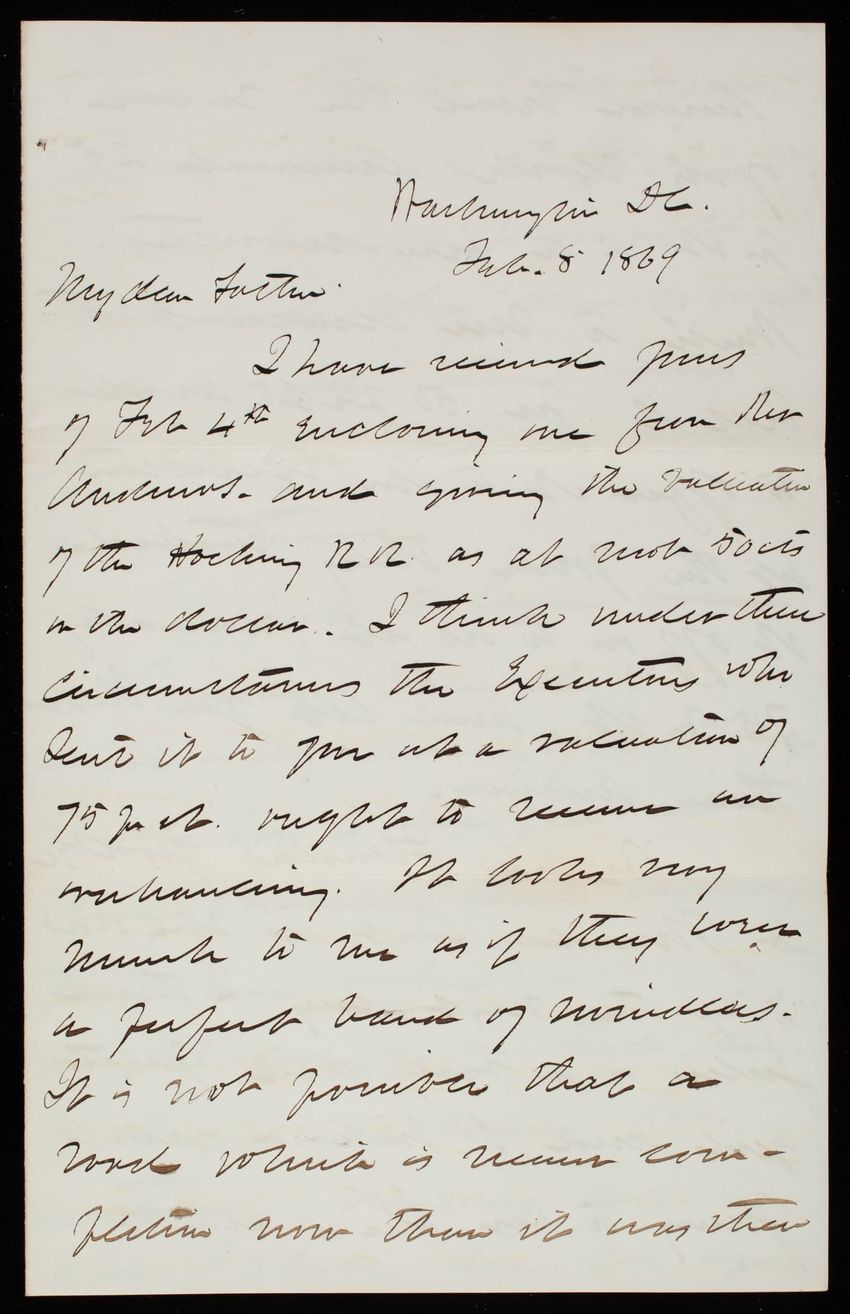 Washington DC.
Feb. 8 1869
My dear Father.
I have received yours
of Feb 4th enclosing one from Rev
Andrews. and giving the valuation
of the Hocking R R. as at most 50 cts
on the dollar. I think under these
circumstances the Executors who
sent it to you at a valuation of
75 pr ct. ought to receive an
overhauling. It looks very
much to me as if they were
a perfect band of swindlers.
It is not possible that a
road which is nearer com-
pletion now than it was then